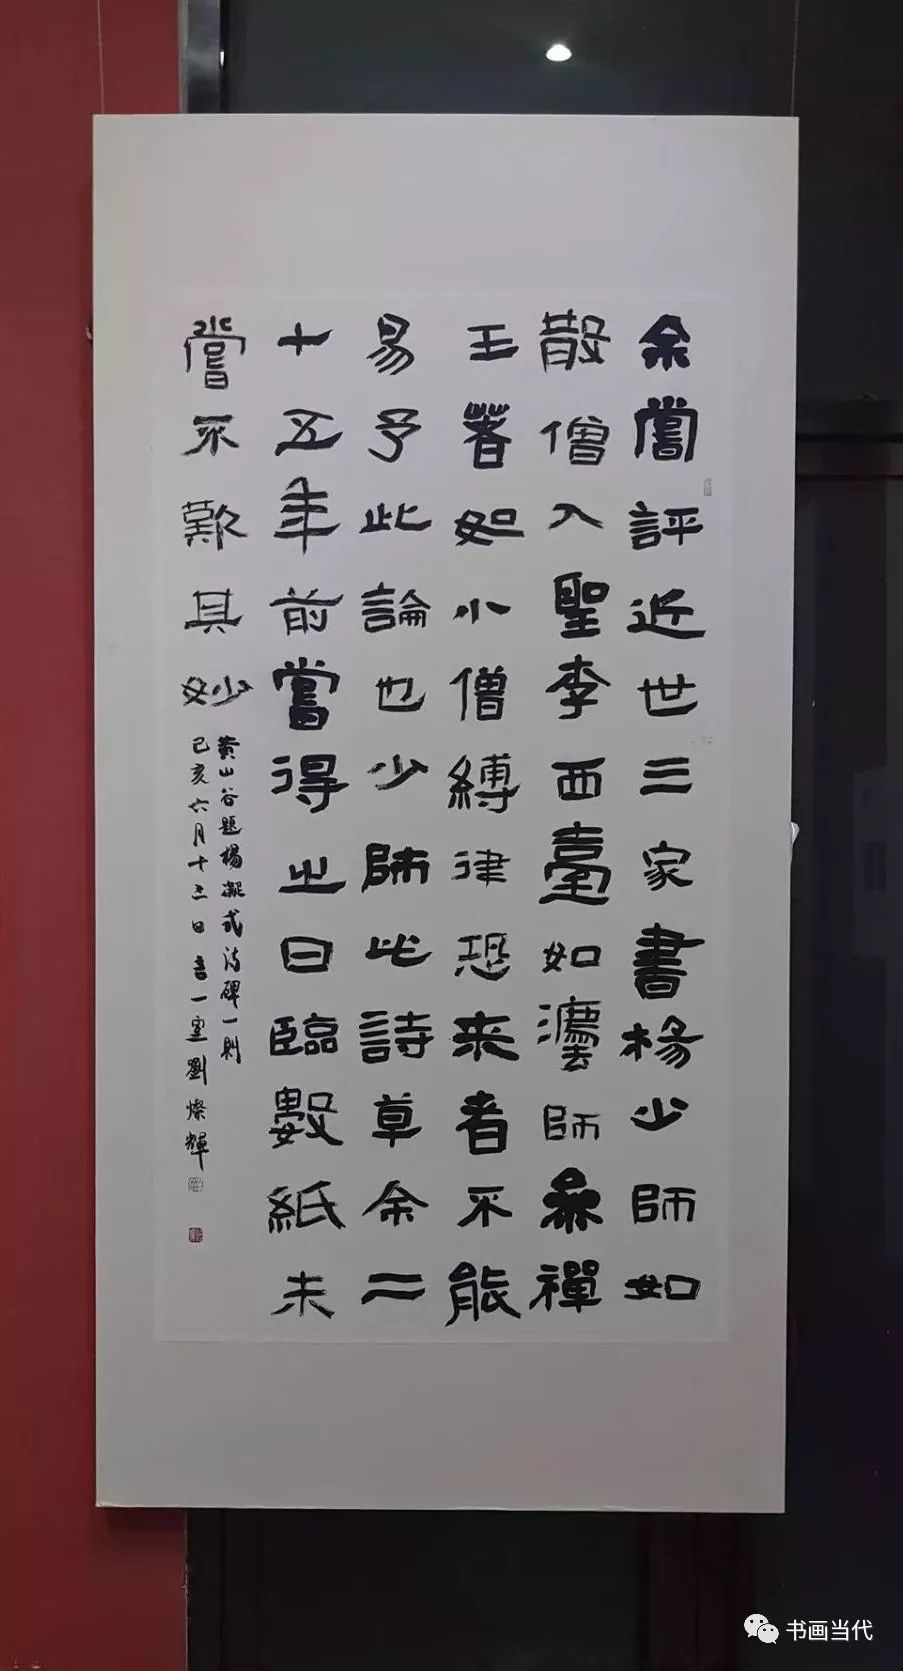 余嘗評近世三家書楊少師如
散僧入聖李西臺如灋師參禪
王著如小僧縛律恐来者不能
易予此論也少師此詩草余二
十五年前嘗得之日臨數紙未
嘗不歎其妙
黄山谷題楊凝式詩碑一則
己亥六月十三日 吉一室劉燦輝
书画当代